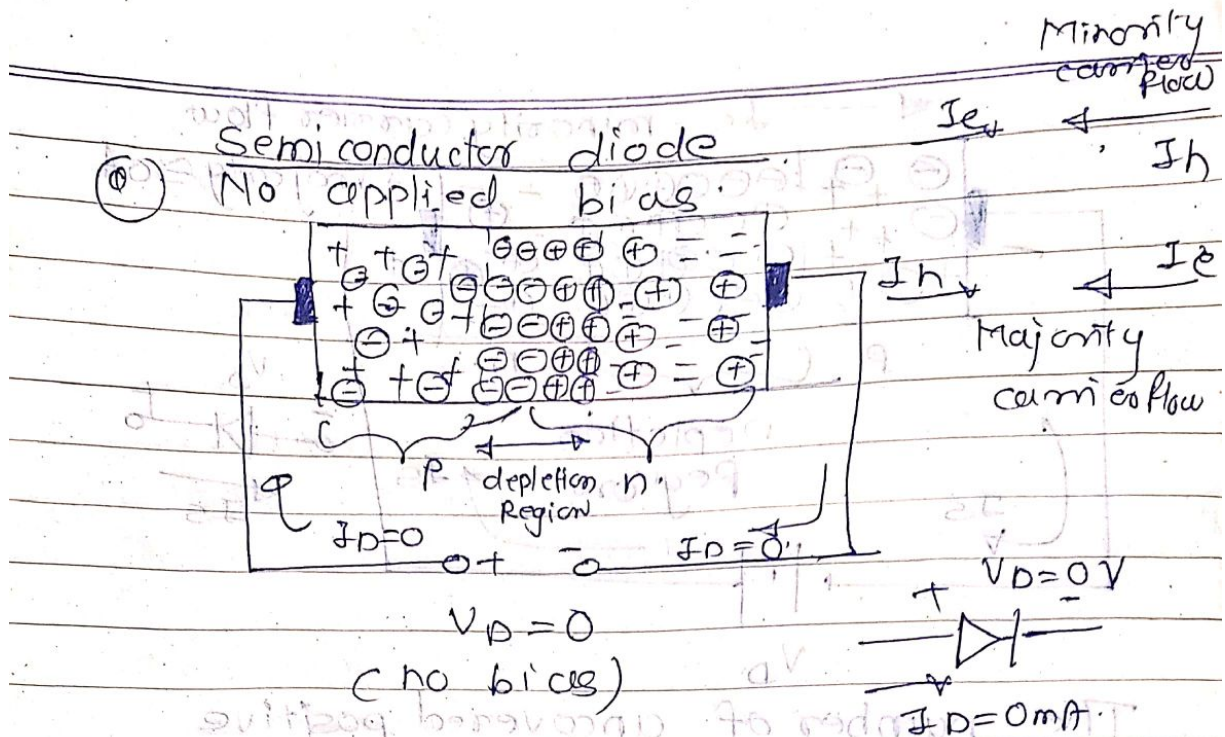 Minority
carrier
flow
Ie
Ih
Semiconductor diode
① No applied bias.
Ih
Ie
Majority
carrier flow
P depletion n.
Region
ID=0
+ -
ID=0
VD=0
(no bias)
VD=0V
+ -
ID=0mA.